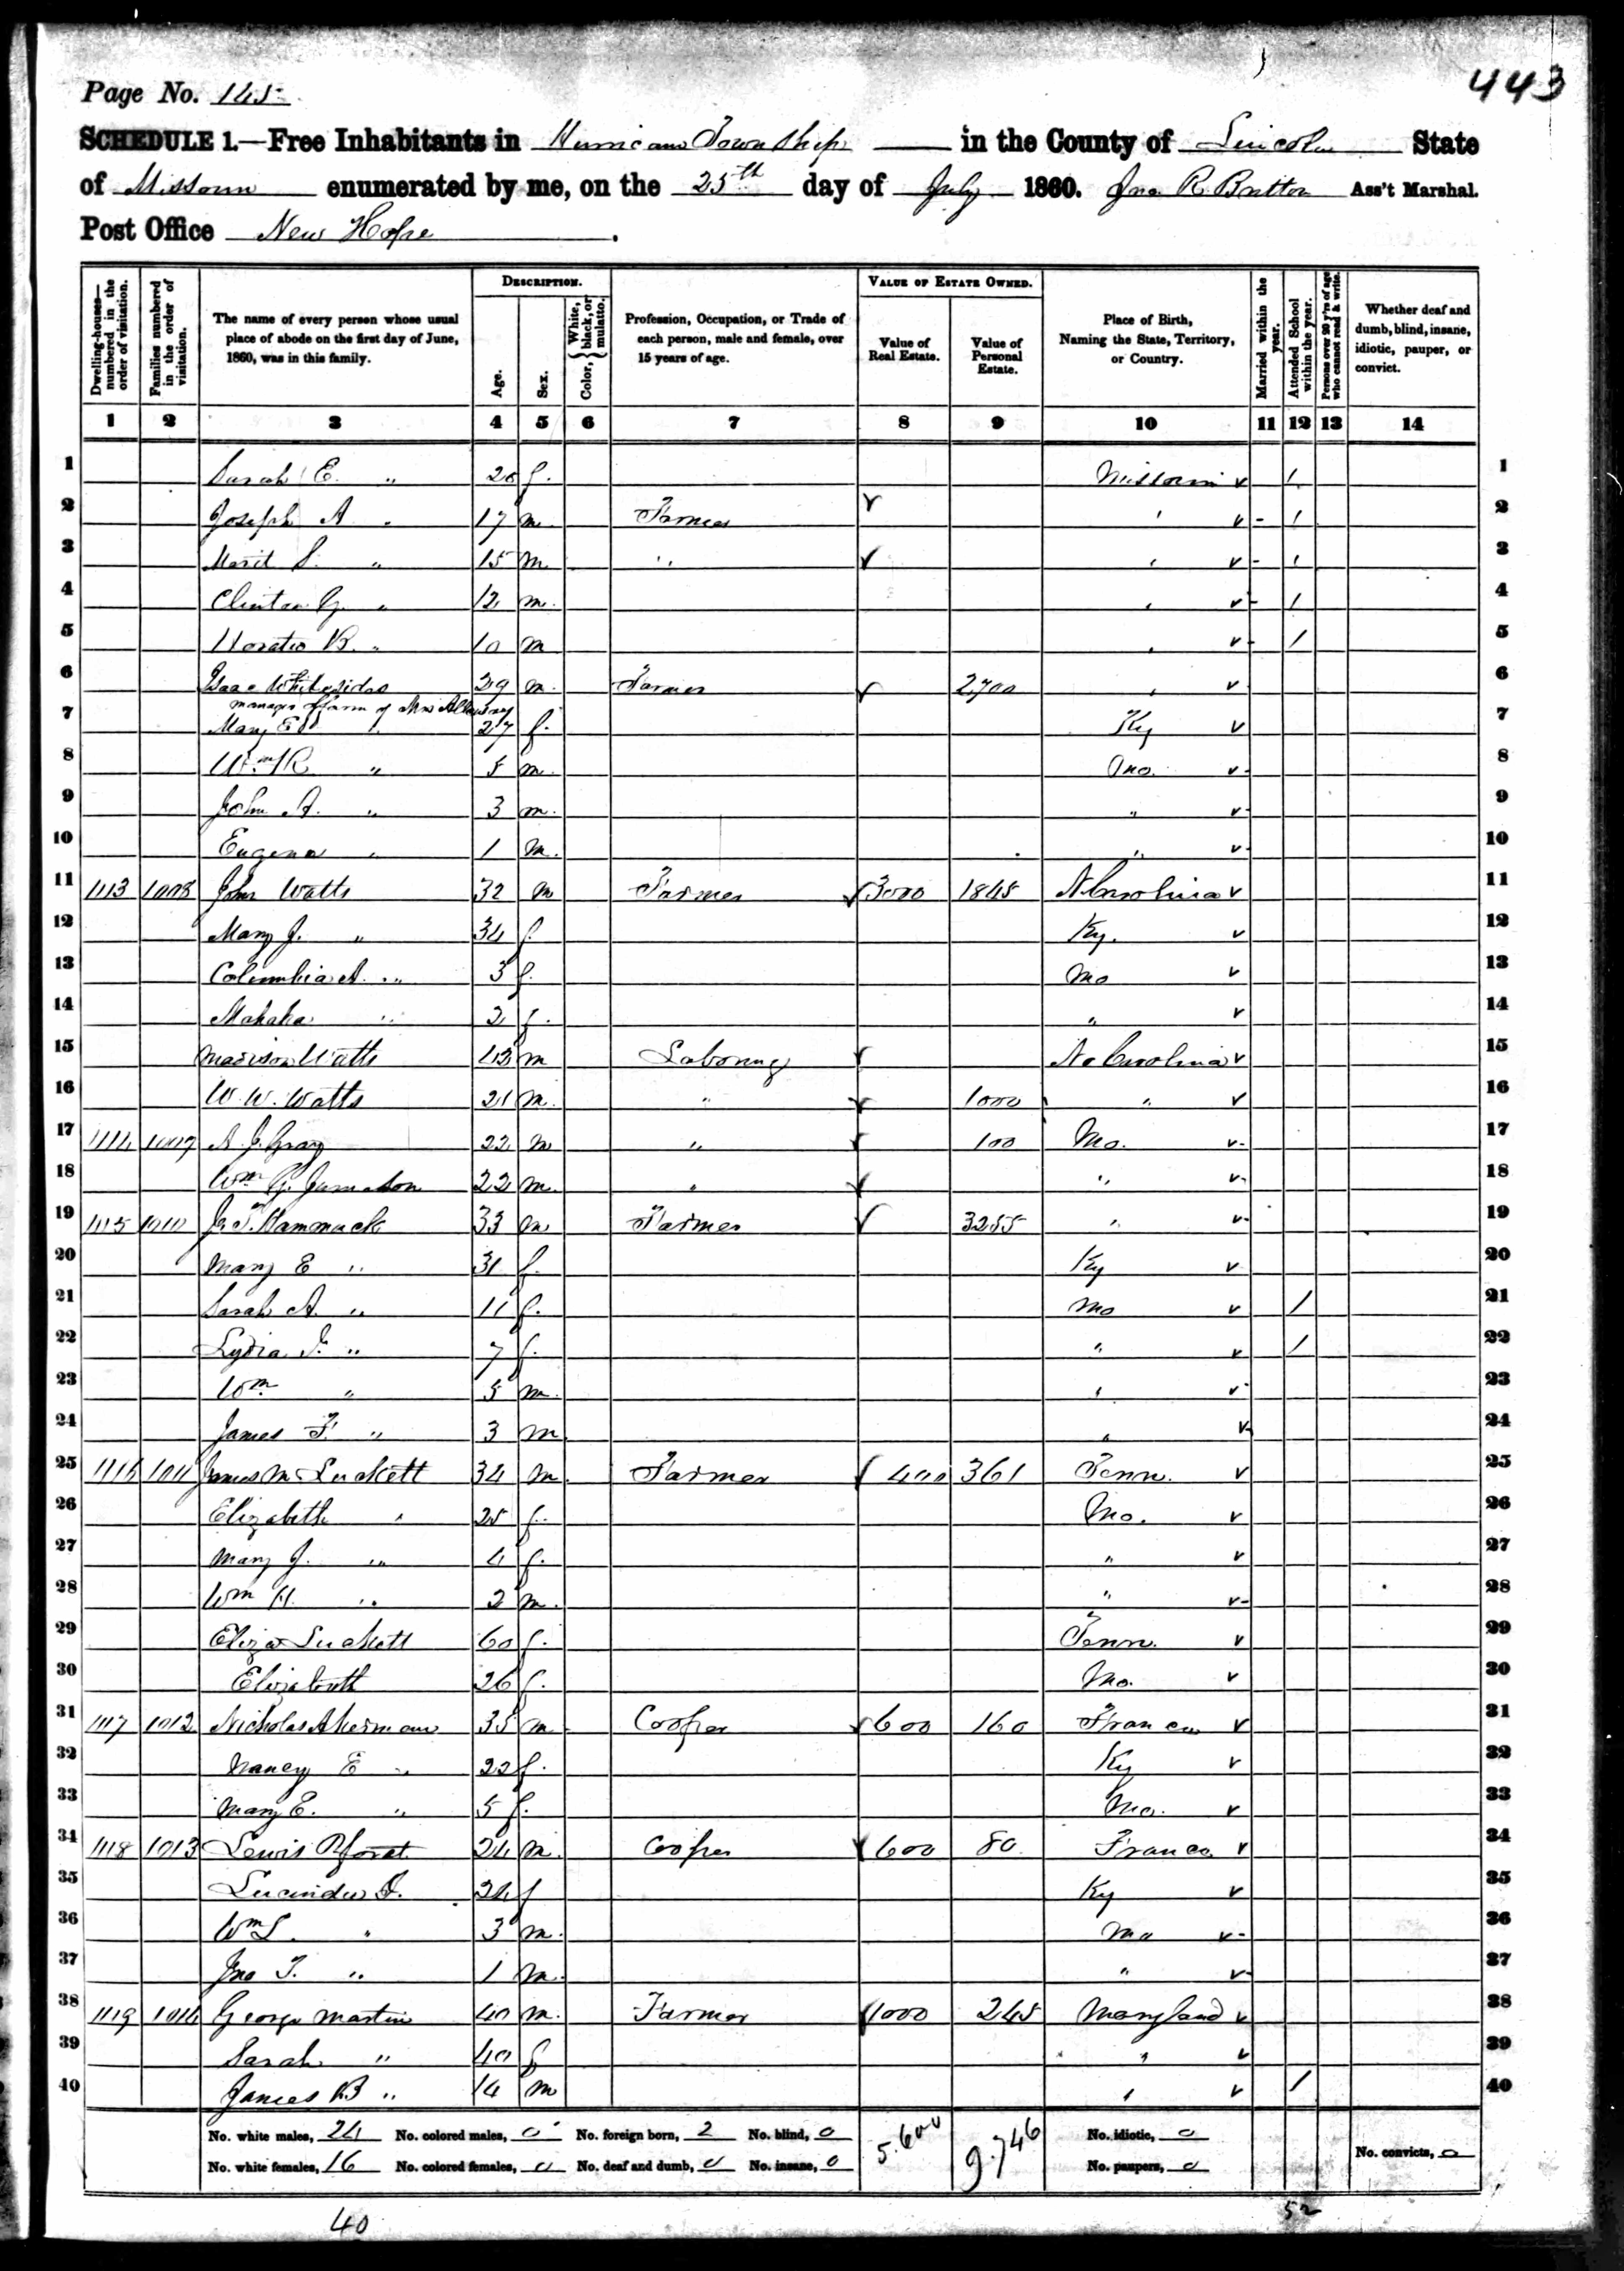 443
Page No. 145
SCHEDULE 1.—Free Inhabitants in Hurricane Township in the County of Lincoln State
of Missouri enumerated by me, on the 25th day of July 1860. Jno R. Britton Ass't Marshal.
Post Office New Hope.
Dwelling-houses—numbered in the order of visitation. Families numbered in the order of visitation. The name of every person whose usual place of abode on the first day of June, 1860, was in this family. DESCRIPTION. Age. Sex. Color, { White, black, or mulatto. Profession, Occupation, or Trade of each person, male and female, over 15 years of age. VALUE OF ESTATE OWNED. Value of Real Estate. Value of Personal Estate. Place of Birth, Naming the State, Territory, or Country. Married within the year. Attended School within the year. Persons over 20 y'rs of age who cannot read & write. Whether deaf and dumb, blind, insane, idiotic, pauper, or convict.
1 2 3 4 5 6 7 8 9 10 11 12 13 14
1 Sarah E. " 20 f. Missouri / 1
2 Joseph A " 17 m Farmer ' / 2
3 S. " 15 m " ' / 3
4 Clinton G. " 12 m. ' / 4
5 Horatio B. " 10 m ' / 5
6 Isaac Whitesides 29 m. Farmer 2700 ' 6
manages Farm of Mrs
7 Mary E 27 f. Ky 7
8 Wm R " 5 m. Mo. 8
9 John A. " 3 m. " 9
10 Eugene " 1 m. " 10
11 1113 1008 John Watts 32 m Farmer 3000 1845 N Carolina 11
12 Mary J. " 34 f. Ky. 12
13 Columbia A. " 3 f. Mo 13
14 Mahala " 2 f. " 14
15 Madison Watts 43 m Laboring No Carolina 15
16 W. W. Watts 21 m. " 1000 " 16
17 1114 1009 A. J. Gray 22 m " 100 Mo. 17
18 Wm G. Jameson 22 m. " " 18
19 1115 1010 J. T. Hammack 33 m Farmer 3255 " 19
20 Mary E " 31 f. Ky 20
21 Sarah A. " 11 f. Mo / 21
22 Lydia J. " 7 f. " / 22
23 Wm " 5 m. " 23
24 James F. " 3 m. " 24
25 1116 1011 James M Luckett 34 m. Farmer 400 361 Tenn. 25
26 Elizabeth " 25 f. Mo. 26
27 Mary J. " 4 f. " 27
28 Wm H. " 2 m. " 28
29 Eliza Luckett 60 f. Tenn. 29
30 Elizabeth 26 f. Mo. 30
31 1117 1012 Nicholas Akerman 35 m. Cooper 600 160 France 31
32 Nancy E " 22 f. Ky 32
33 Mary E. " 5 f. Mo. 33
34 1118 1013 Lewis 24 m. Cooper 600 80 France 34
35 Lucinda J. 24 f Ky 35
36 Wm L. " 3 m. Mo 36
37 Jno T. " 1 m. " 37
38 1119 1014 George Martin 40 m. Farmer 1000 245 Maryland 38
39 Sarah " 40 f " 39
40 James B " 14 m ' / 40
No. white males, 24 No. colored males, 0 No. foreign born, 2 No. blind, 0 5.600 9.746 No. idiotic, 0
No. white females, 16 No. colored females, 0 No. deaf and dumb, 0 No. insane, 0 No. paupers, 0 No. convicts, 0
40 52